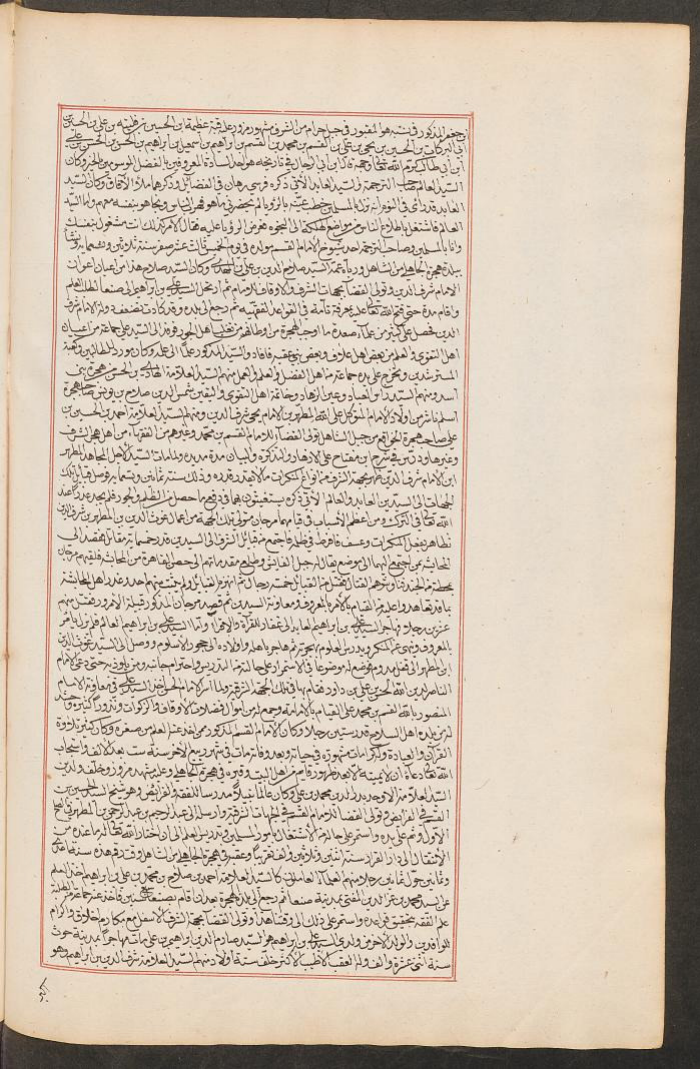 بن جعفر المذكور في نسبه هو المقبور في جبل حرام من الشرف مشهور مزور عليه قبة عظيمة ابن الحسين بن فليته بن علي بن الحسين بن
أبي البركات بن الحسين بن يحيى بن علي بن القسم بن محمد بن القسم بن ابراهيم بن اسمعيل بن ابراهيم بن الحسن بن الحسن بن علي
ابن أبي طالب كرم الله تعالى وجهه قال ابن أبي الرجال في تاريخه هو احد السادة المعروفين بالفضل الموسومين بالخير وكان
السيد العالم صاحب الترجمة والسيد العابد الآتي ذكره فرسي رهان في الفضائل وذكرهما ملأ الآفاق وكان السيد
العابد قد رأى في النوم انه نزل بالمسلمين خطب عبّر بالرؤيا لم يحضرني ما هو ففر الناس ونجا هو بنفسه منهم واما السيد
العالم فاشتغل باطلاع الناس من مواضع الهلكة الى النجوة فعرض الرؤيا عليه فقال الأمر كذلك انت مشغول بنفسك
وانا بالمسلمين وصاحب الترجمة احد شيوخ الامام القسم مولده في يوم الخميس ثالث عشر صفر سنة ثلاثين وتسعمائة ونشأ
ببلده هجرة الجاهلي من الشاهل ورباه عمه السيد صلاح الدين بن علي بن المهدي وكان السيد صلاح هذا من اعيان اعوان
الامام شرف الدين وتولى القضا بجهات الشرف والاوقاف للامام ثم ارتحل السيد علي بن ابراهيم الى صنعا لطلب العلم
واقام مدة حتى فتح الله تعالى عليه بمعرفة تامة في القواعد الفقهية ثم رجع الى بلده وقد كادت تضعف دولة الامام شرف
الدين فحصل على كثير من علماء صعدة ما اوجب الهجرة من اوطانهم فوفد الى السيد علي جماعة من اعيان
اهل التقوى والعلم من بعض اهل علاف وبعض بني عقبة فافاد السيد المذكور علما الى علمه وكان مورد للطالبين وكعبة
المسترشدين وتخرج على يده جماعة من اهل الفضل والعلم والعمل منهم السيد العلامة الهادي بن الحسن من هجرة بني
اسد ومنهم السيد رأس العباد وعين الزهاد وخاتمة اهل التقوى واليقين شمس الدين صلاح بن يونس صاحب هجرة
اسلم ناشر من اولاد الامام المتوكل على الله المطهر بن الامام يحيى شرف الدين ومنهم السيد العلامة احمد بن الحسين بن
علي صاحب هجرة الحواقع من جبل الشاهل تولى القضاء للامام القسم بن محمد وغيرهم من الفقهاء من اهل هجر الشرف
وغيرها ودرّس في شرح ابن مفتاح على الازهار والتذكرة والبيان مدة مديدة ولما مات السيد الاجل المجاهد المطهر
ابن الامام شرف الدين ظهر بجهة الشرف من انواع المنكرات ما لا يقدر قدره وذلك سنة ثمانين وتسعمائة فوصل قبائل تلك
الجهات الى السيدين العابد والعالم الآتي ذكره يستغيثون بهما في دفع ما حصل من الظلم والجور فلم يجد عذرا عند
الله تعالى في الترك ومن اعظم الاسباب في قيامهما مرجان متولي تلك الجهة من اعمال غوث الدين بن المطهر بن شرف الدين
تظاهر بفعل المنكرات وعسف فافرط في ظلمه فاجتمع من قبائل الشرف الى السيدين قدر خمسمائة مقاتل فقصد الى
المحابشة بمن اجتمع اليهما الى موضع يقال له جبل الفايش وطلع مقدمتهما الى حصن القاهرة من المحابشة فلقيهم مرجان
بمحطة من الجند فناوشوهم القتال فقتل من القبائل خمسة رجال ثم انهزم القبائل ولم يثبت منهم احد وغدر اهل المحابشة
بما قد تعاهدوا عليه من القيام بالامر بالمعروف ومعاونة السيدين ثم قصد مرجان المذكور قبيلة الامرور فقتل منهم
عشرين رجلا وهاجر السيد علي بن ابراهيم العابد الى غفار للقرآة والاقرآ واما السيد علي بن ابراهيم العالم فلم يزل يامر
بالمعروف وينهى عن المنكر ويدرس العلوم بهجرته ثم هاجر باهله واولاده الى هجرة الاسلوم ووصل الى السيد غوث الدين
ابن المطهر الى قفل مدوم فوضع له موضوعا في الاستمرار على حالته من التدريس واحترام جانبه ومن يلوذ به حتى دعى الامام
الناصر لدين الله الحسن بن علي بن داود فقام بها في تلك الجهة الشرقية ولما اسر الامام الحسن اخذ السيد علي في معاونة الامام
المنصور بالله القسم بن محمد على القيام بالامامة وجمع له من اموال فضلات الاوقاف والزكوات ونذور كثيرة وحشد
له من بلده اهل السلاح قدر ستين رجلا وكان الامام القسم المذكور ممن اخذ عنه العلم من صغره وكان كثير تلاوة
القرآن والعبادة والكرامات مشهورة في حياته وبعد وفاته مات في شهر ربيع الآخر سنة ست بعد الالف واستجاب
الله تعالى دعاءه ان لا يميته الا بعد ظهور قائم من اهل البيت وقبره في هجرة الجاهلي وعليه مشهد مزور وخلف ولدين
السيد العلامة الاوحد بدر الدين محمد بن علي وكان عالما نبيلا مدرسا للفقه والفرائض وهو شيخ السيد الحسين بن
القسم في الفرائض وتولى القضا للامام القسم في الجهات الشرفية وارسله الى عبد الرحيم بن عبد الرحمن بن المطهر في الصلح
الاول وتم على يده واستمر على حالته من الاشتغال بامور المسلمين وتدريس العلم الى ان اختار الله تعالى له ما عنده من
الانتقال الى دار القرار سنة اثنين وثلاثين والف تقريبا وعقبه في هجرة الجاهلي من الشاهل وقت رقم هذه سنة احدى
وثمانين حول ثمانين رجلا ومنهم العلماء العاملين كالسيد العلامة احمد بن صلاح بن محمد بن علي بن ابراهيم اخذ العلم
عن السيد محمد بن عز الدين المفتي بمدينة صنعا ثم رجع الى بلده الهجرة بعد ان اقام بصنعا سبع سنين فاخذ عنه جماعة من الطلبة
علم الفقه بتحقيق قواعده واستمر على ذلك الى وقتنا هذا وتولى القضا بجهة الشرف الاسفل مع مكارم اخلاق واكرام
للوافدين والولد الآخر من ولدي السيد علي بن ابراهيم هو السيد صارم الدين ابراهيم بن علي مات مهاجرا بمدينة حوث
سنة اثنتي عشرة والف وله العقب الاطيب الاكثر خلف ستة اولاد منهم السيد العلامة شرف الدين بن ابراهيم وهو